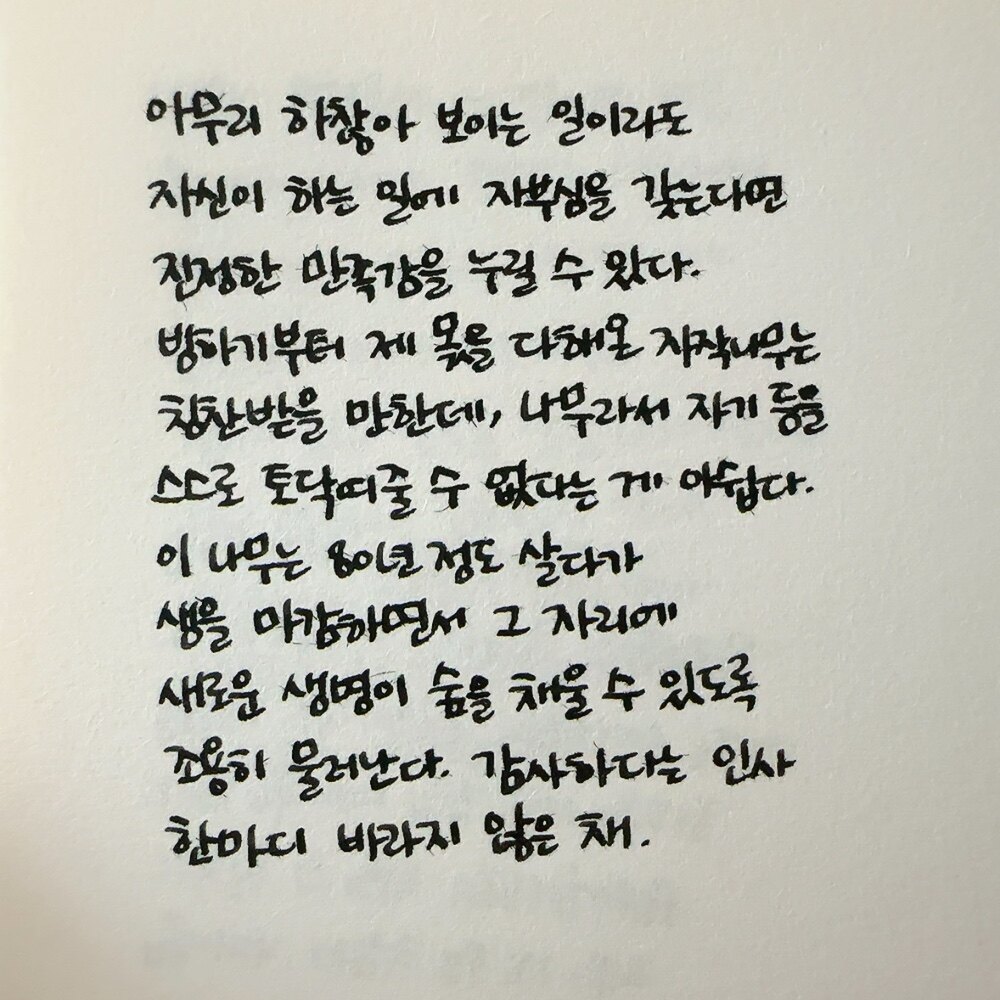 아무리 하찮아 보이는 일이라도
자신이 하는 일에 자부심을 갖는다면
진정한 만족감을 누릴 수 있다.
방하기부터 제 몫을 다해온 자작나무는
칭찬받을 만한데, 나무라서 자기 등을
스스로 토닥여줄 수 없다는 게 아쉽다.
이 나무는 80년 정도 살다가
생을 마감하면서 그 자리에
새로운 생명이 숲을 채울 수 있도록
조용히 물러난다. 감사하다는 인사
한마디 바라지 않은 채.